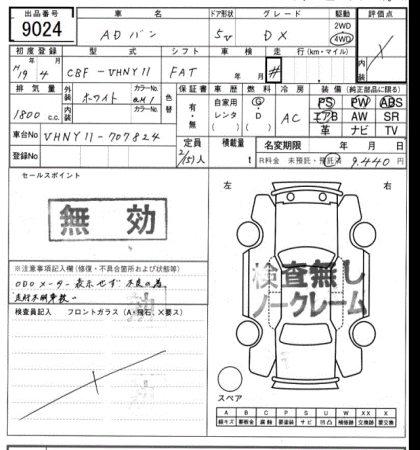 出品番号 車名 ドア形状 グレード 駆動 評価点
9024 ADバン 5V DX 2WD 4WD
初度登録 型式 シフト 車検 走行(km・マイル) 内装
H19年4月 CBF-VHNY11 FAT 年 月 #
排気量 外装 ホワイト カラーNo. 色替 保証書 車歴 燃料 冷房 装備(純正部品に限る)
1800c.c. 内装 カラーNo. 有・無 自家用 レンタ G・D AC PS PW ABS
エアB AW SR
革 ナビ TV
車台No VHNY11-707824 定員 2/(5)人 積載量 t 名変期限 年 月 日
登録No R料金 未預託・預託済 9,440円
セールスポイント
無効
左 右
※注意事項記入欄(修復・不具合箇所および状態等)
ODOメーター表示せず 不良の為
走行不明車扱い
検査員記入 フロントガラス(A・飛石、X要ス)
検査無し
ノークレーム
スペア
A B C P S U W XX X
線キズ 要板金 腐蝕 要塗装 サビ 凹凸 補修跡 交換跡 要交換